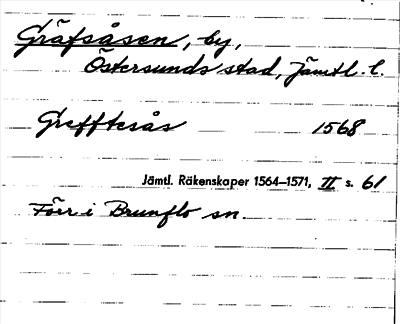 Gräfsåsen, by,
Östersunds stad, Jämtl. l.
Greffteräs 1568
Jämtl. Räkenskaper 1564–1571, II s. 61
Förr i Brunflo sn